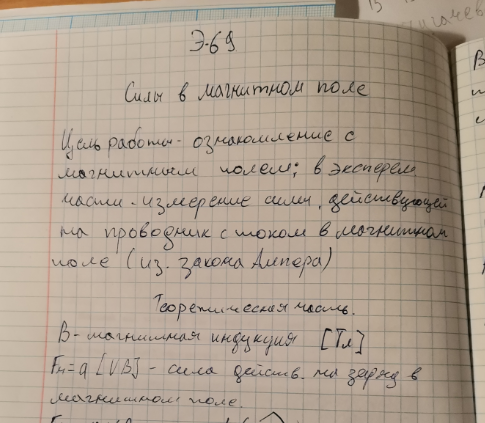 Э-69
Силы в магнитном поле
Цель работы - ознакомление с
магнитным полем; в эксперем.
части - измерение силы, действующей
на проводник с током в магнитном
поле (из. закона Ампера)
Теоретическая часть.
B - магнитная индукция [Тл]
Fм = q [VB] - сила действ. на заряд в
магнитном поле.